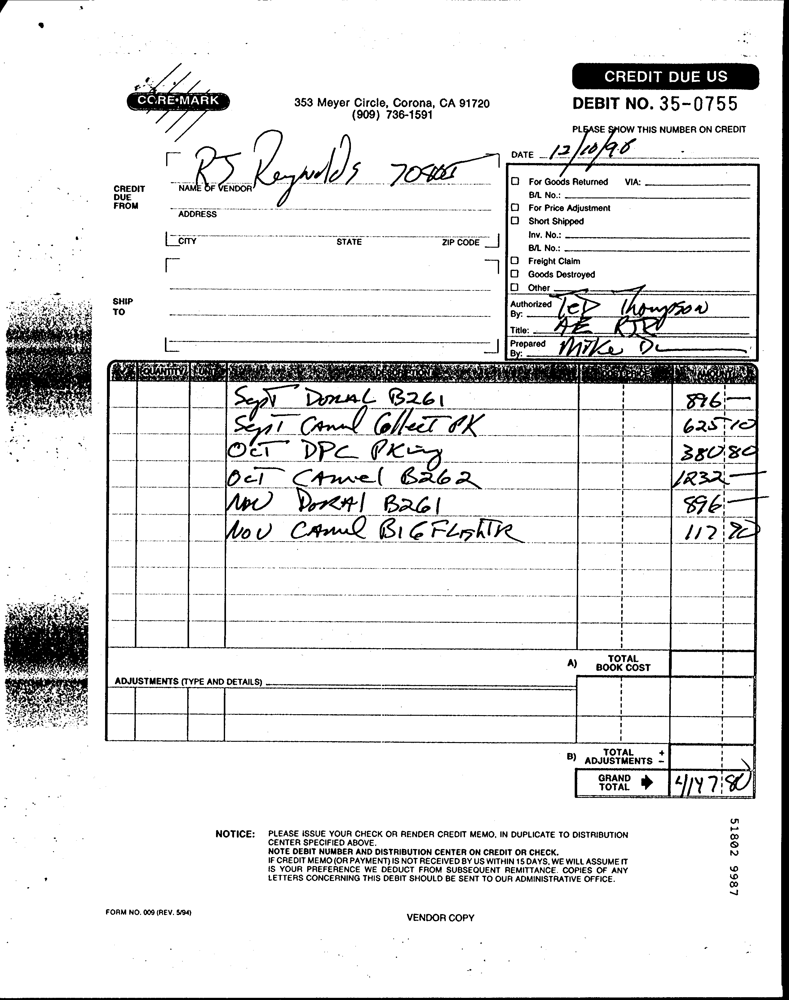 CREDIT DUE US
CORE-MARK
353 Meyer Circle, Corona, CA 91720
(909) 736-1591
DEBIT NO. 35-0755
PLEASE SHOW THIS NUMBER ON CREDIT
DATE 12/10/96
RJ Reynolds
CREDIT DUE FROM
NAME OF VENDOR
ADDRESS
CITY STATE ZIP CODE
For Goods Returned VIA:
B/L No.:
For Price Adjustment
Short Shipped
Inv. No.:
B/L No.:
Freight Claim
Goods Destroyed
Other
SHIP TO
Authorized By: Ted Thompson
Title: AE RJR
Prepared By: Mike
QUANTITY
Sept DORAL B261 896 —
Sept Camel Collect PK 625 10
Oct DPC PKing 380 80
Oct Camel B262 1232 —
Nov DORAL B261 896 —
Nov Camel 117 90
A) TOTAL BOOK COST
ADJUSTMENTS (TYPE AND DETAILS)
B) TOTAL ADJUSTMENTS + −
GRAND TOTAL 4147 80
NOTICE: PLEASE ISSUE YOUR CHECK OR RENDER CREDIT MEMO, IN DUPLICATE TO DISTRIBUTION
CENTER SPECIFIED ABOVE.
NOTE DEBIT NUMBER AND DISTRIBUTION CENTER ON CREDIT OR CHECK.
IF CREDIT MEMO (OR PAYMENT) IS NOT RECEIVED BY US WITHIN 15 DAYS, WE WILL ASSUME IT
IS YOUR PREFERENCE WE DEDUCT FROM SUBSEQUENT REMITTANCE. COPIES OF ANY
LETTERS CONCERNING THIS DEBIT SHOULD BE SENT TO OUR ADMINISTRATIVE OFFICE.
51802 9987
FORM NO. 009 (REV. 5/94)
VENDOR COPY